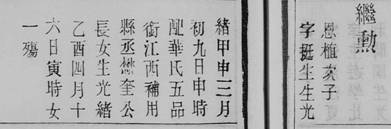 繼勳
恩植次子
字挺生生光
緒甲申三月
初九日申時
配華氏五品
銜江西補用
縣丞懋奎公
長女生光緒
乙酉四月十
六日寅時女
一殤